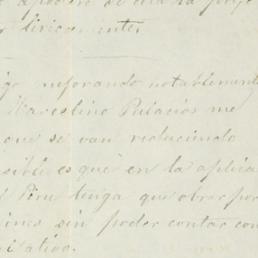 apoderó de ella la
liricamente.
igo mejorando notablemente
Marcelino Palacios me
que se van reduciendo
sible es que en la aplica
Peru tenga que obrar por
ines sin poder contar con